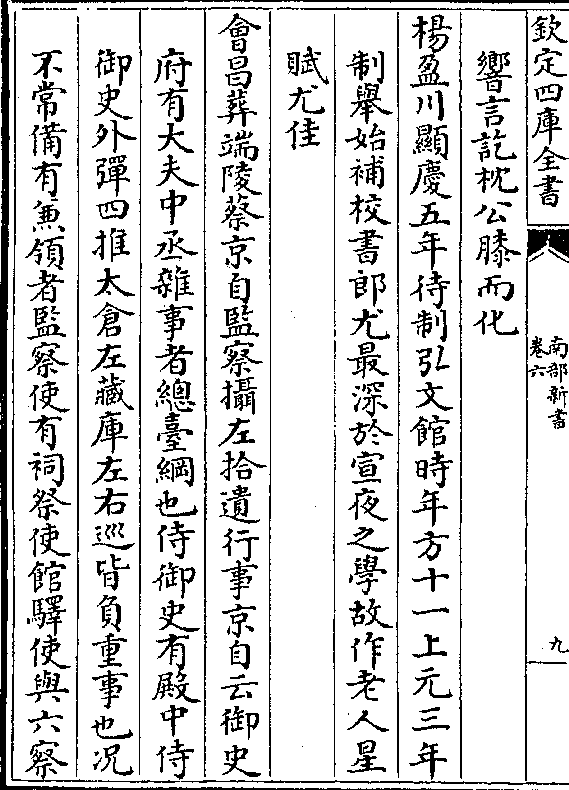 欽定四庫全書
南部新書
卷六
九
響言訖枕公膝而化
楊盈川顯慶五年待制弘文館時年方十一上元三年
制舉始補校書郎尤最深於宣夜之學故作老人星
賦尤佳
會昌葬端陵蔡京自監察攝左拾遺行事京自云御史
府有大夫中丞雜事者總臺綱也侍御史有殿中侍
御史外彈四推太倉左藏庫左右巡皆負重事也况
不常備有兼領者監察使有祠祭使館驛使與六察